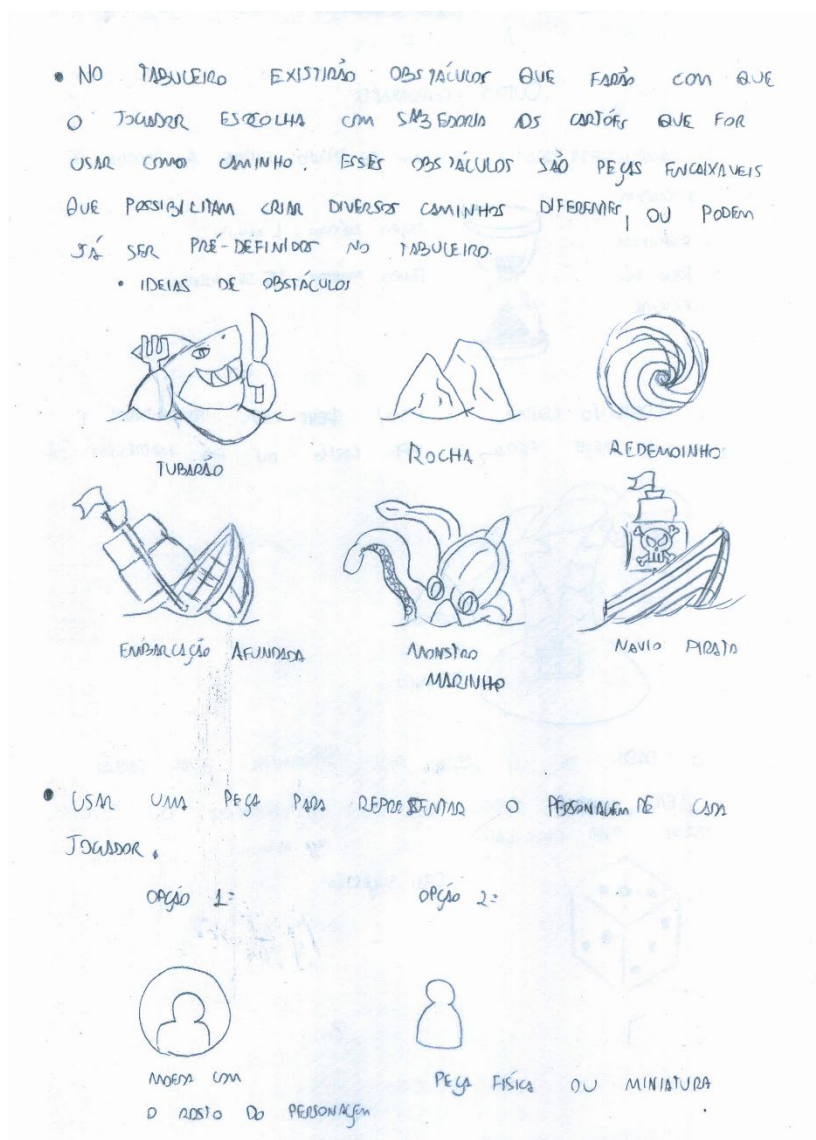 • NO TABULEIRO EXISTIRÃO OBSTÁCULOS QUE FARÃO COM QUE
O JOGADOR ESCOLHA COM SABEDORIA OS CARTÕES QUE FOR
USAR COMO CAMINHO. ESSES OBSTÁCULOS SÃO PEÇAS ENCAIXAVEIS
QUE POSSIBILITAM CRIAR DIVERSOS CAMINHOS DIFERENTES, OU PODEM
JÁ SER PRÉ-DEFINIDOS NO TABULEIRO.
• IDEIAS DE OBSTÁCULOS
TUBARÃO
ROCHA
REDEMOINHO
EMBARCAÇÃO AFUNDADA
MONSTRO
MARINHO
NAVIO PIRATA
• USAR UMA PEÇA PARA REPRESENTAR O PERSONAGEM DE CADA
JOGADOR.
OPÇÃO 1:
OPÇÃO 2:
MOEDA COM
O ROSTO DO PERSONAGEM
PEÇA FÍSICA OU MINIATURA